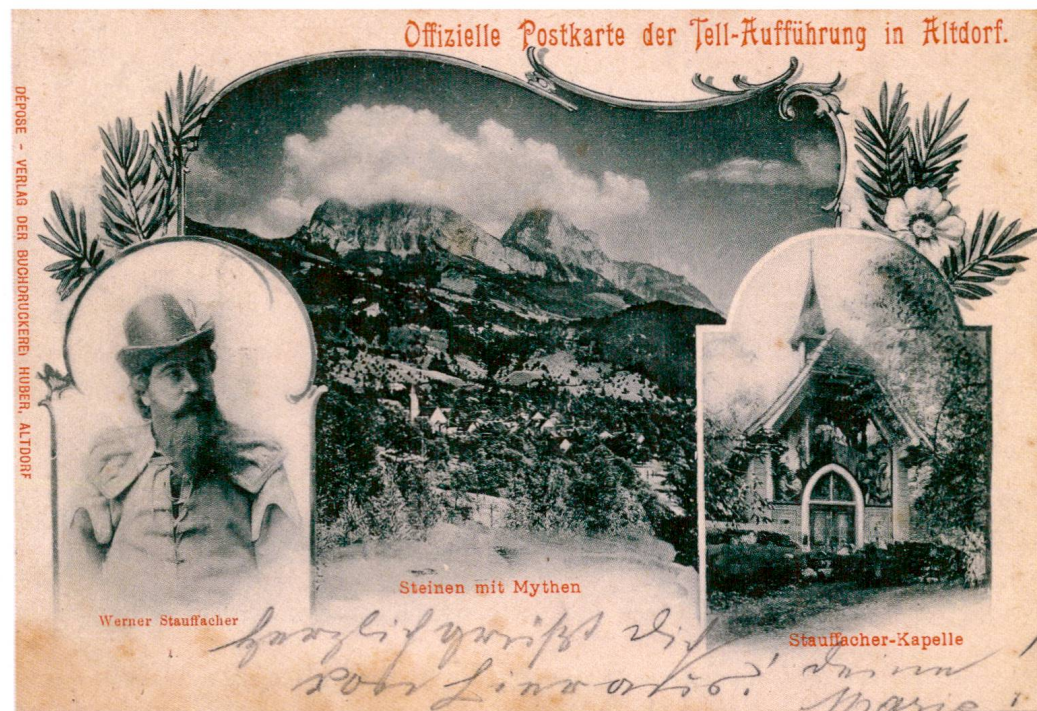 Offizielle Postkarte der Tell-Aufführung in Altdorf.
DÉPOSE - VERLAG DER BUCHDRUCKEREI HUBER, ALTDORF
Steinen mit Mythen
Werner Stauffacher
Stauffacher-Kapelle
Herzlich grüßt Dich
von hier aus! Deine
Marie!